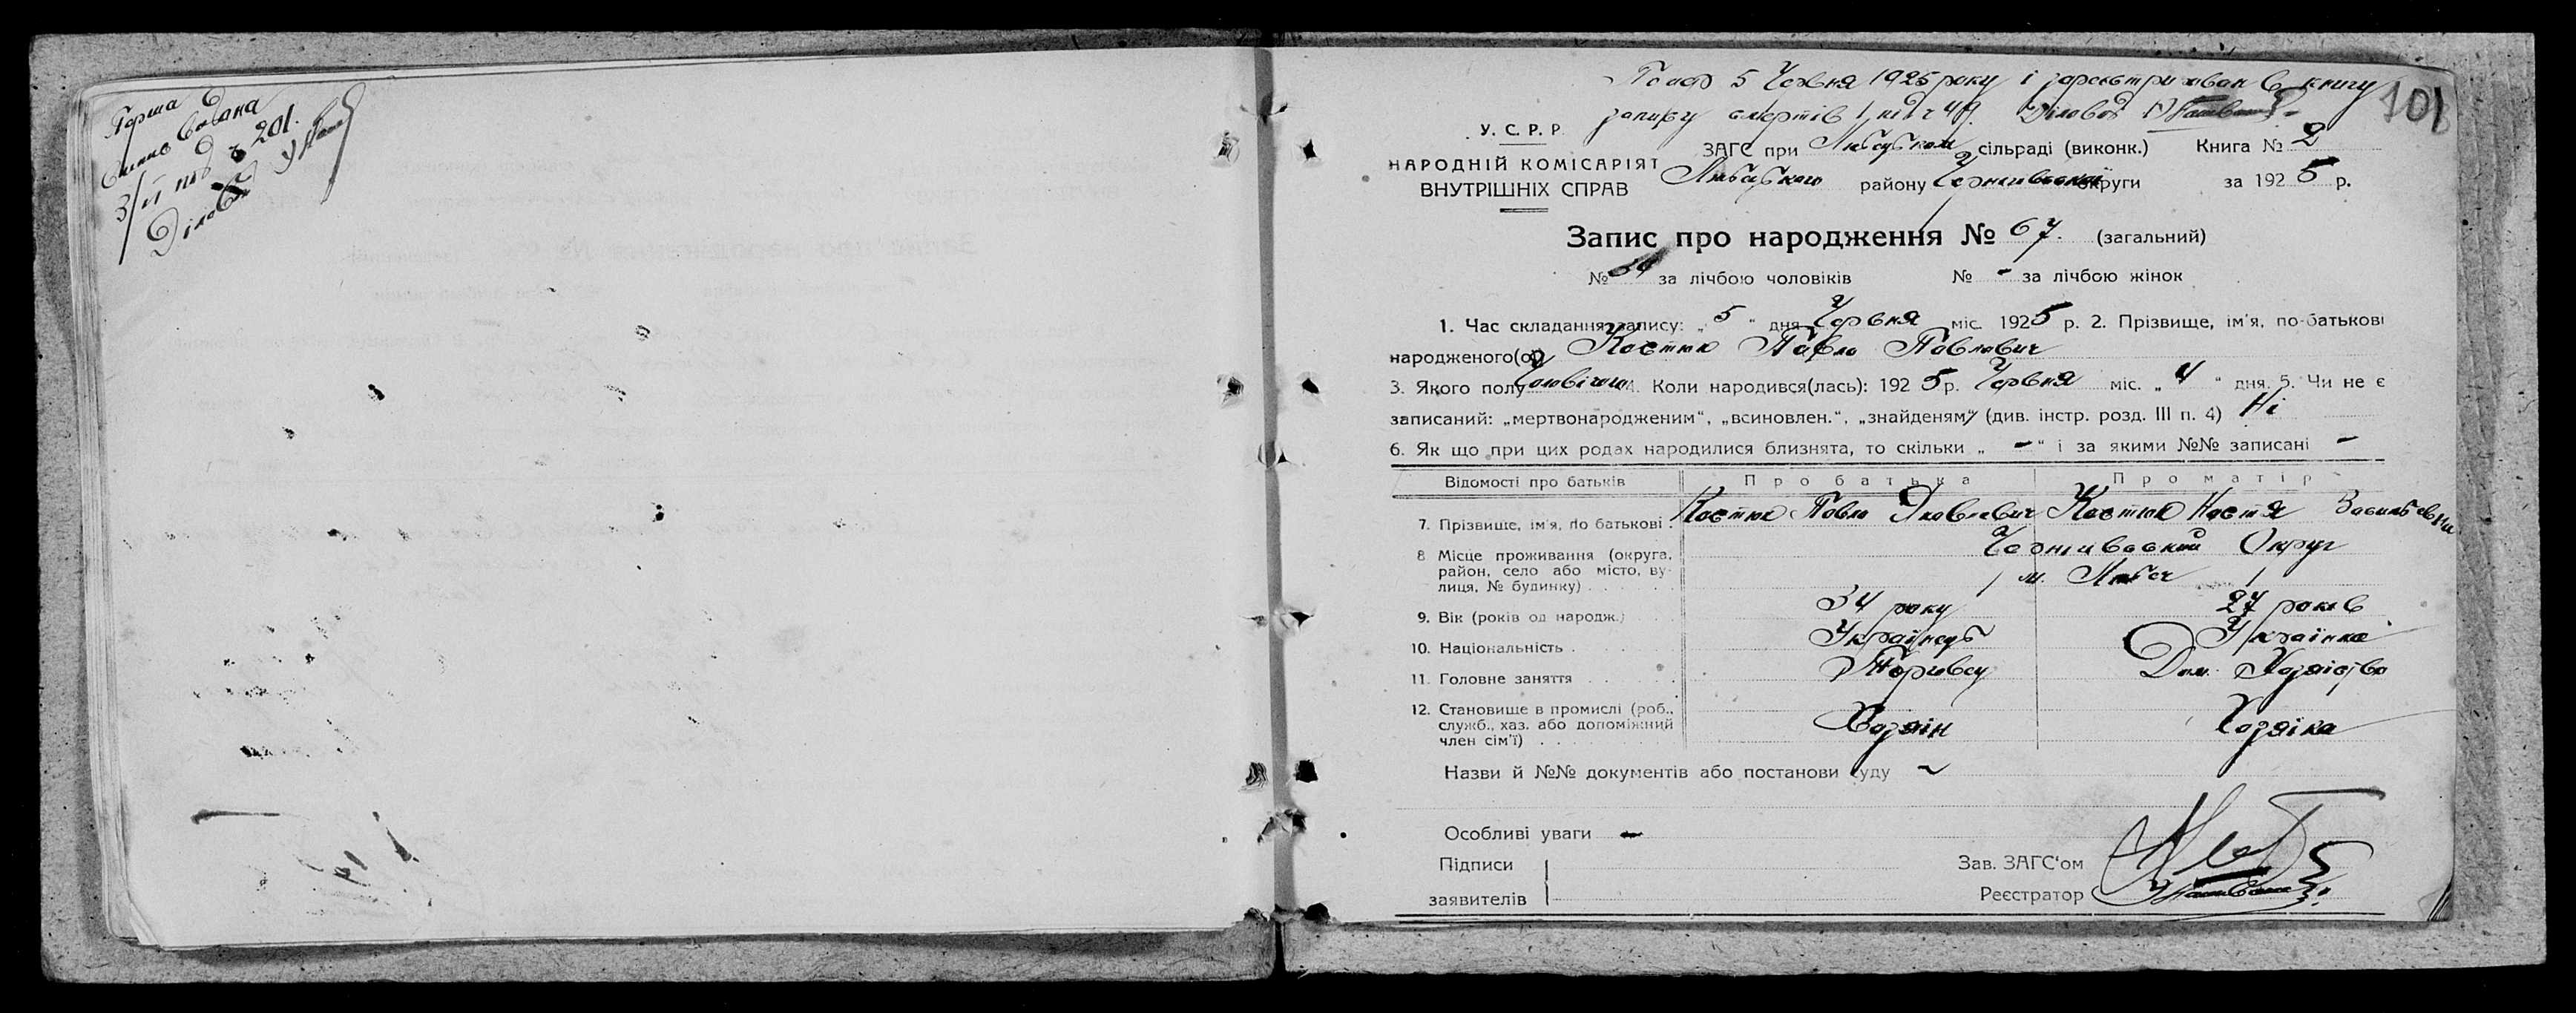 Перша
виписка видана
3/VI під ч 201.
Діловод
Помер 5 Червня 1925 року і зареєстрирован в книгу
запису смертів під ч 49. Діловод
101
У. С. Р. Р.
НАРОДНІЙ КОМІСАРІЯТ
ВНУТРІШНІХ СПРАВ
ЗАГС при Любецком сільраді (виконк.) Книга № 2
Любецкого району Чернигівської округи за 1925 р.
Запис про народження № 67. (загальний)
№ 34 за лічбою чоловіків № - за лічбою жінок
1. Час складання запису: „5“ дня Червня міс. 1925 р. 2. Прізвище, ім'я, по-батькові
народженого(ої) Костюк Павло Павлович
3. Якого полу Чоловічого 4. Коли народився(лась): 1925 р. Червня міс. „4“ дня. 5. Чи не є
записаний: „мертвонародженим“, „всиновлен.“, „знайденям“ (див. інстр. розд. III п. 4) Ні
6. Як що при цих родах народилися близнята, то скільки „-“ і за якими №№ записані -
Відомості про батьків Про батька Про матір
7. Прізвище, ім'я, по батькові . Костюк Павло Яковлевич Костюк Настя Васильевна
8 Місце проживання (округа, район, село або місто, вулиця, № будинку) . . . . . Чернигівський Округ
м. Любеч
9. Вік (років од народж.) 34 року 27 років
10. Національність . Українець Українка
11. Головне заняття . . . . . Торговец Дом. Хозяйство
12. Становище в промислі (роб., служб., хаз. або допоміжний член сім'ї) . . . . . Хозяїн Хозяйка
Назви й №№ документів або постанови суду -
Особливі уваги -
Підписи
заявителів
Зав. ЗАГС'ом
Реєстратор